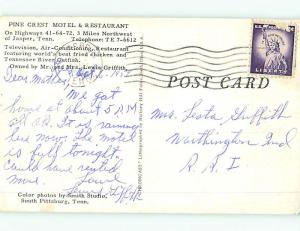 PINE CREST MOTEL & RESTAURANT
On Highways 41-64-72, 3 Miles Northwest
of Jasper, Tenn. Telephone: TE 7-6612
Television, Air-Conditioning, Restaurant
featuring world's best fried chicken and
Tennessee River Catfish.
Owned by Mr. and Mrs. Lewis Griffith
Dear Mother,
We got
home at about 5 A.M.
all O.K. It is raining
here now. The motel
is full tonight.
Could have rented
more. Love
Color photos by Smith Studio,
South Pittsburg, Tenn.
POST CARD
LIBERTY
Mrs. Griffith
Worthington Ind
R. R. 1